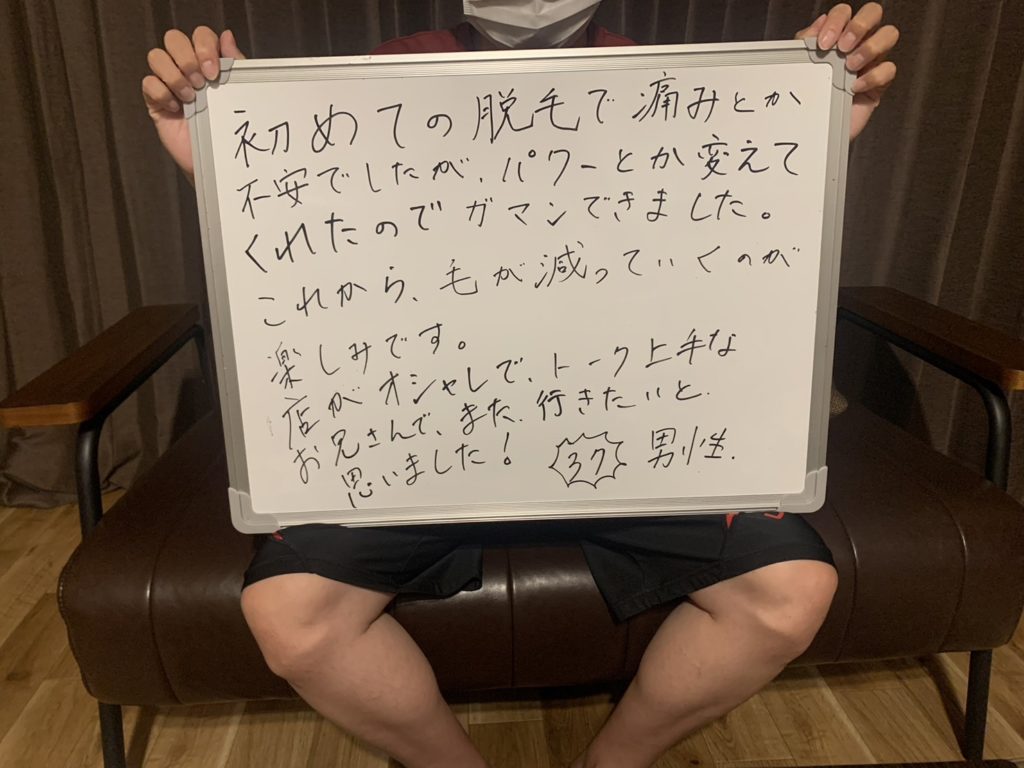 初めての脱毛で痛みとか
不安でしたが、パワーとか変えて
くれたのでガマンできました。
これから、毛が減っていくのが
楽しみです。
店がオシャレで、トーク上手な
お兄さんで、また、行きたいと
思いました! 37 男性.